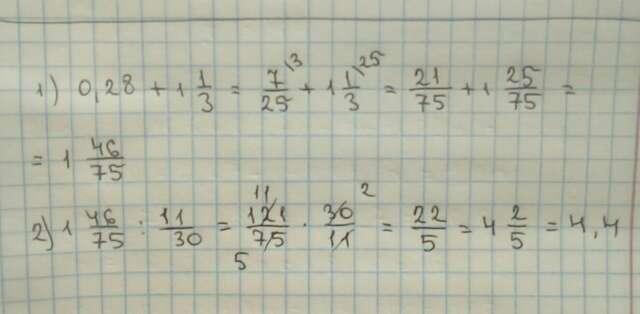 1) 0,28 + 1 1/3 = 7/25 \3 + 1 1/3 \25 = 21/75 + 1 25/75 =
= 1 46/75
2) 1 46/75 : 11/30 = 121/75 · 30/11 = 22/5 = 4 2/5 = 4,4
11 5 2